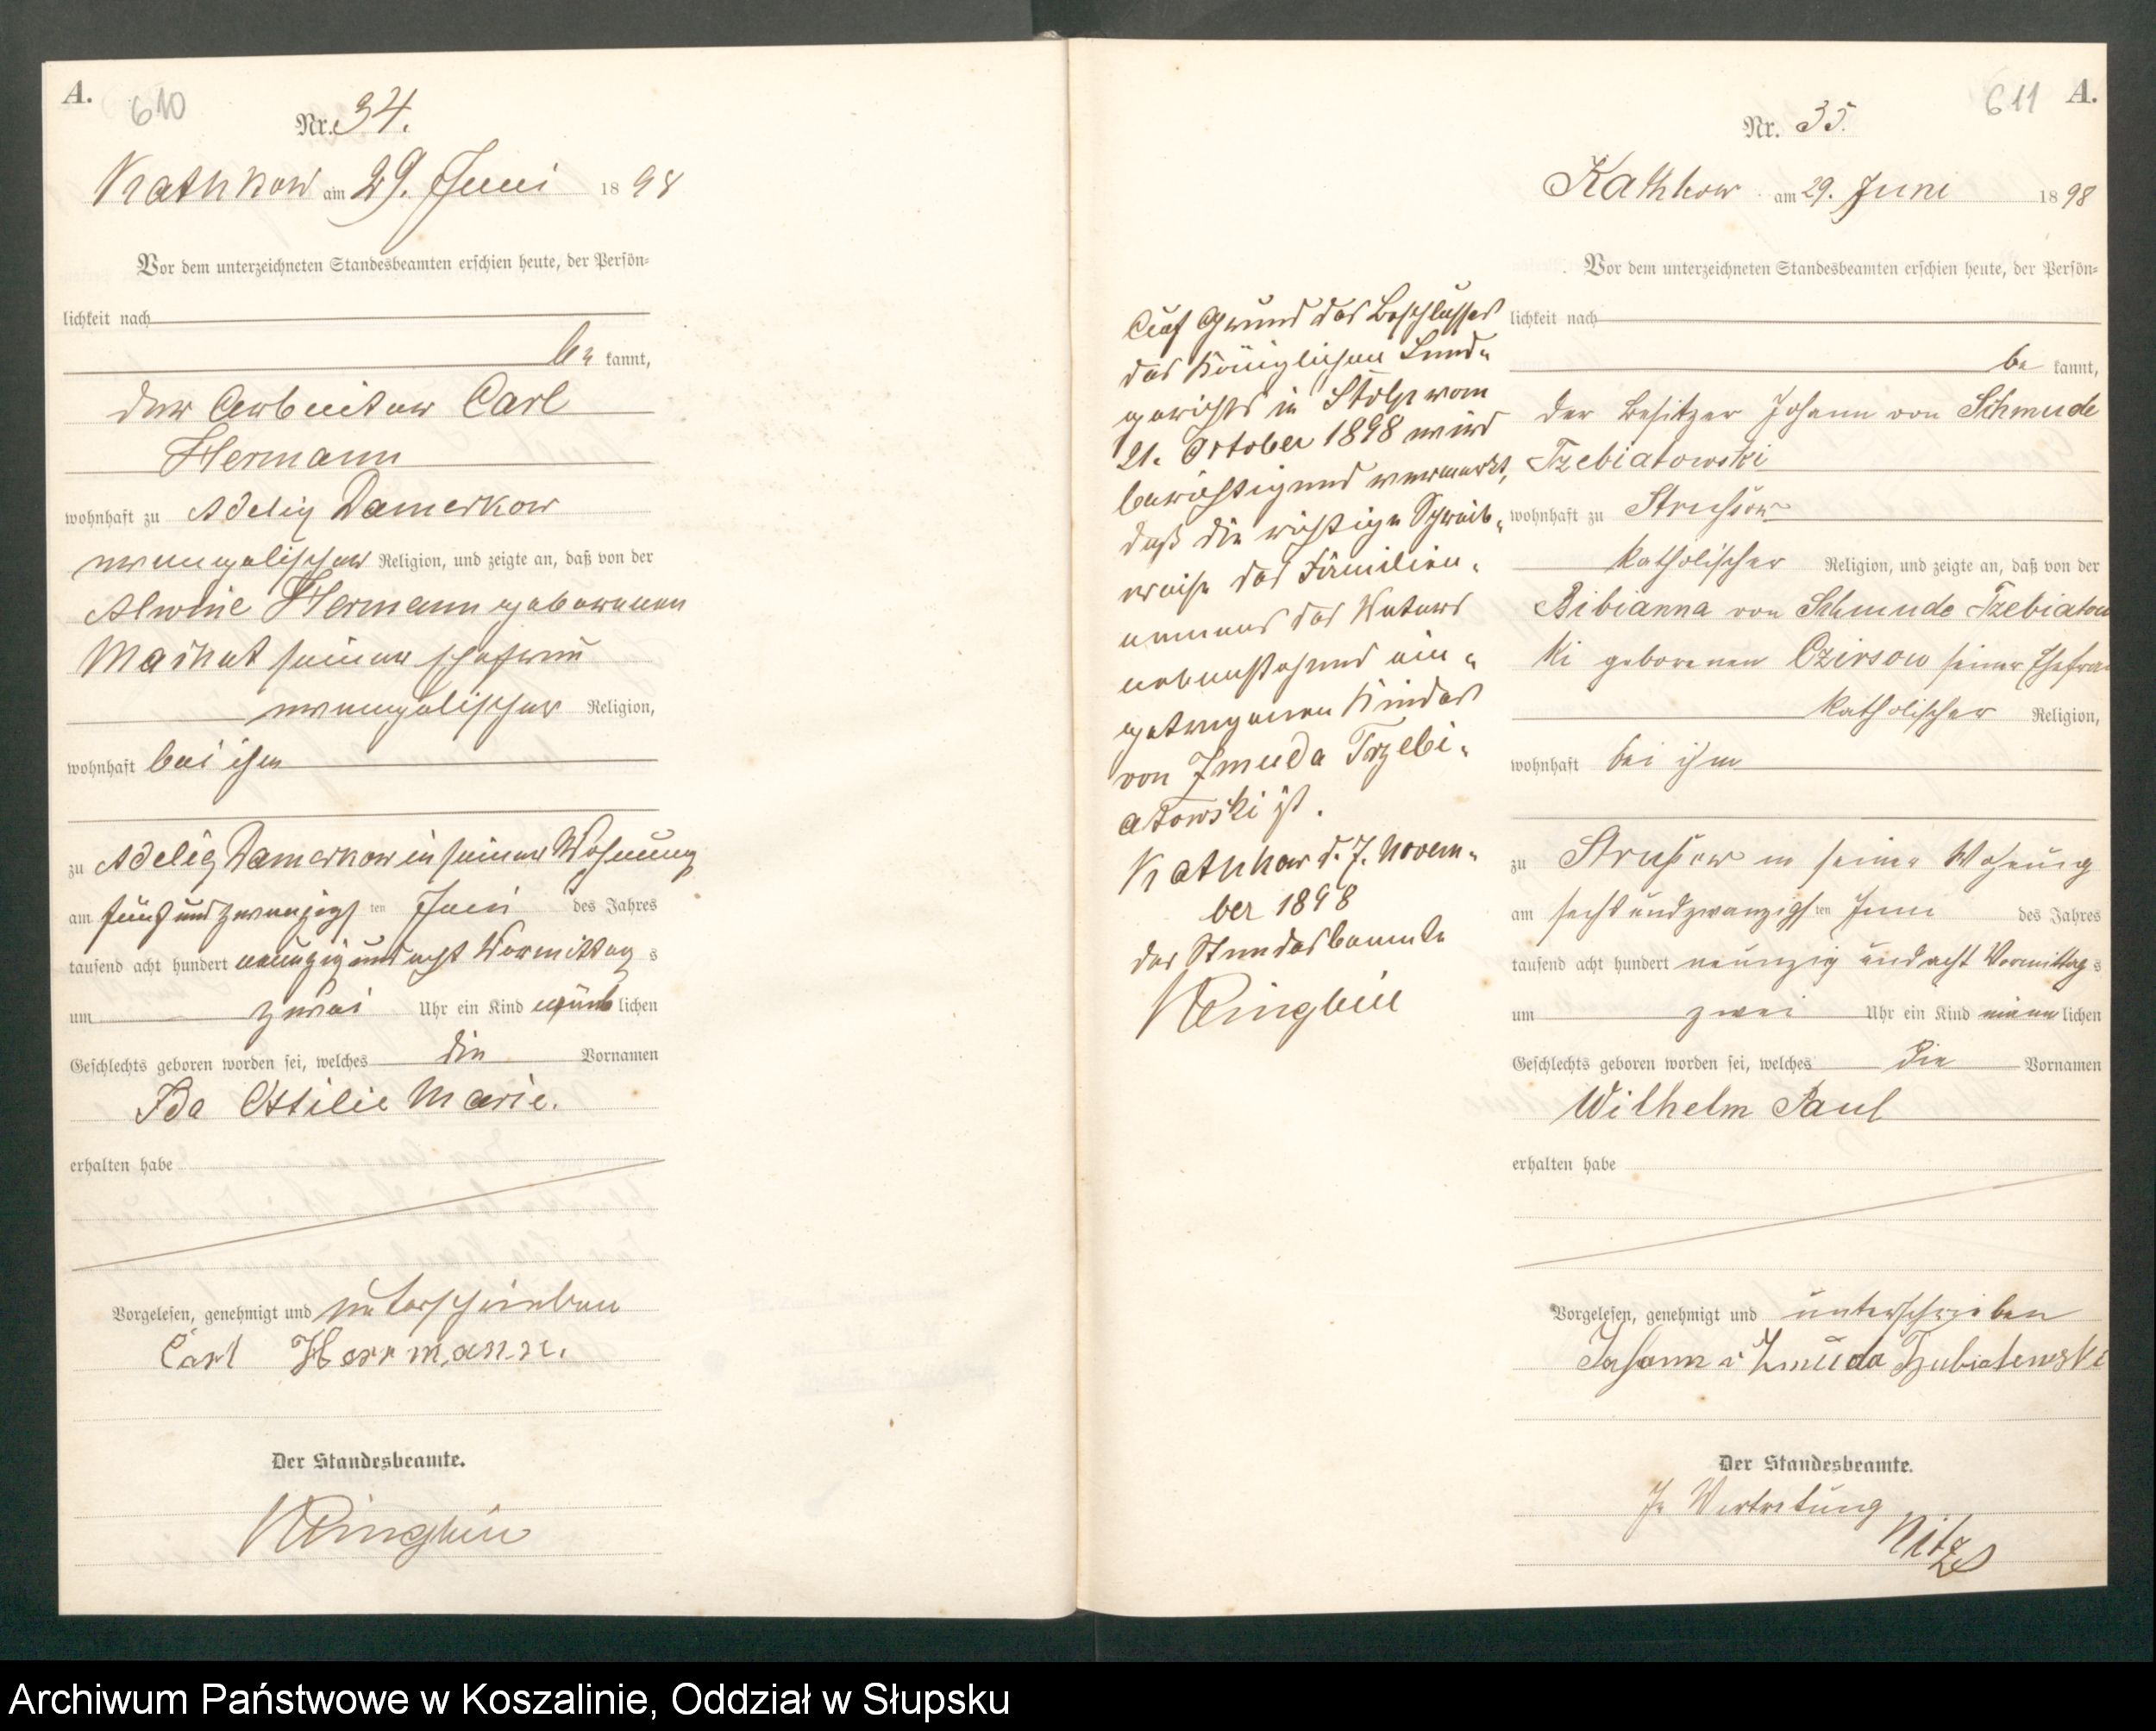 A.
610
Nr. 34.
Kathkow am 29. Juni 1898
Vor dem unterzeichneten Standesbeamten erschien heute, der Persön-
lichkeit nach
be kannt,
der Arbeiter Carl
Hermann
wohnhaft zu Adelig Damerkow
evangelischer Religion, und zeigte an, daß von der
Alwine Hermann geborenen
seiner Ehefrau
evangelischer Religion,
wohnhaft bei ihm
zu Adelig Damerkow in seiner Wohnung
am fünf und zwanzigs ten Juni des Jahres
tausend acht hundert neunzig und acht Vormittag s
um zwei Uhr ein Kind weib lichen
Geschlechts geboren worden sei, welches die Vornamen
Ida Ottilie Marie.
erhalten habe
Vorgelesen, genehmigt und unterschrieben
Carl Herrmann.
Der Standesbeamte.
Auf Grund des Beschlusses
des Königlichen Land-
gerichts in Stolp vom
21. October 1898 wird
berichtigend vermerkt,
daß die richtige Schreib-
weise des Familien-
namens des Vaters
nebenstehend ein-
getragenen Kindes
von Zmuda Trzebi-
atowski ist.
Kathkow d. 7. Novem-
ber 1898
Der Standesbeamte
611
A.
Nr. 35.
Kathkow am 29. Juni 1898
Vor dem unterzeichneten Standesbeamten erschien heute, der Persön-
lichkeit nach
be kannt,
der Besitzer Johann von Schmude
Tzebiatowski
wohnhaft zu Strussow
katholischer Religion, und zeigte an, daß von der
Bibianna von Schmude Tzebiatow
ki geborenen Czirson seiner Ehefrau
katholischer Religion,
wohnhaft bei ihm
zu Strussow in seiner Wohnung
am sechs und zwanzigs ten Juni des Jahres
tausend acht hundert neunzig und acht Vormittag s
um zwei Uhr ein Kind männ lichen
Geschlechts geboren worden sei, welches die Vornamen
Wilhelm Paul
erhalten habe
Vorgelesen, genehmigt und unterschrieben
Johann v Zmuda Tzubiatewski
Der Standesbeamte.
In Vertretung
Nitz
Archiwum Państwowe w Koszalinie, Oddział w Słupsku